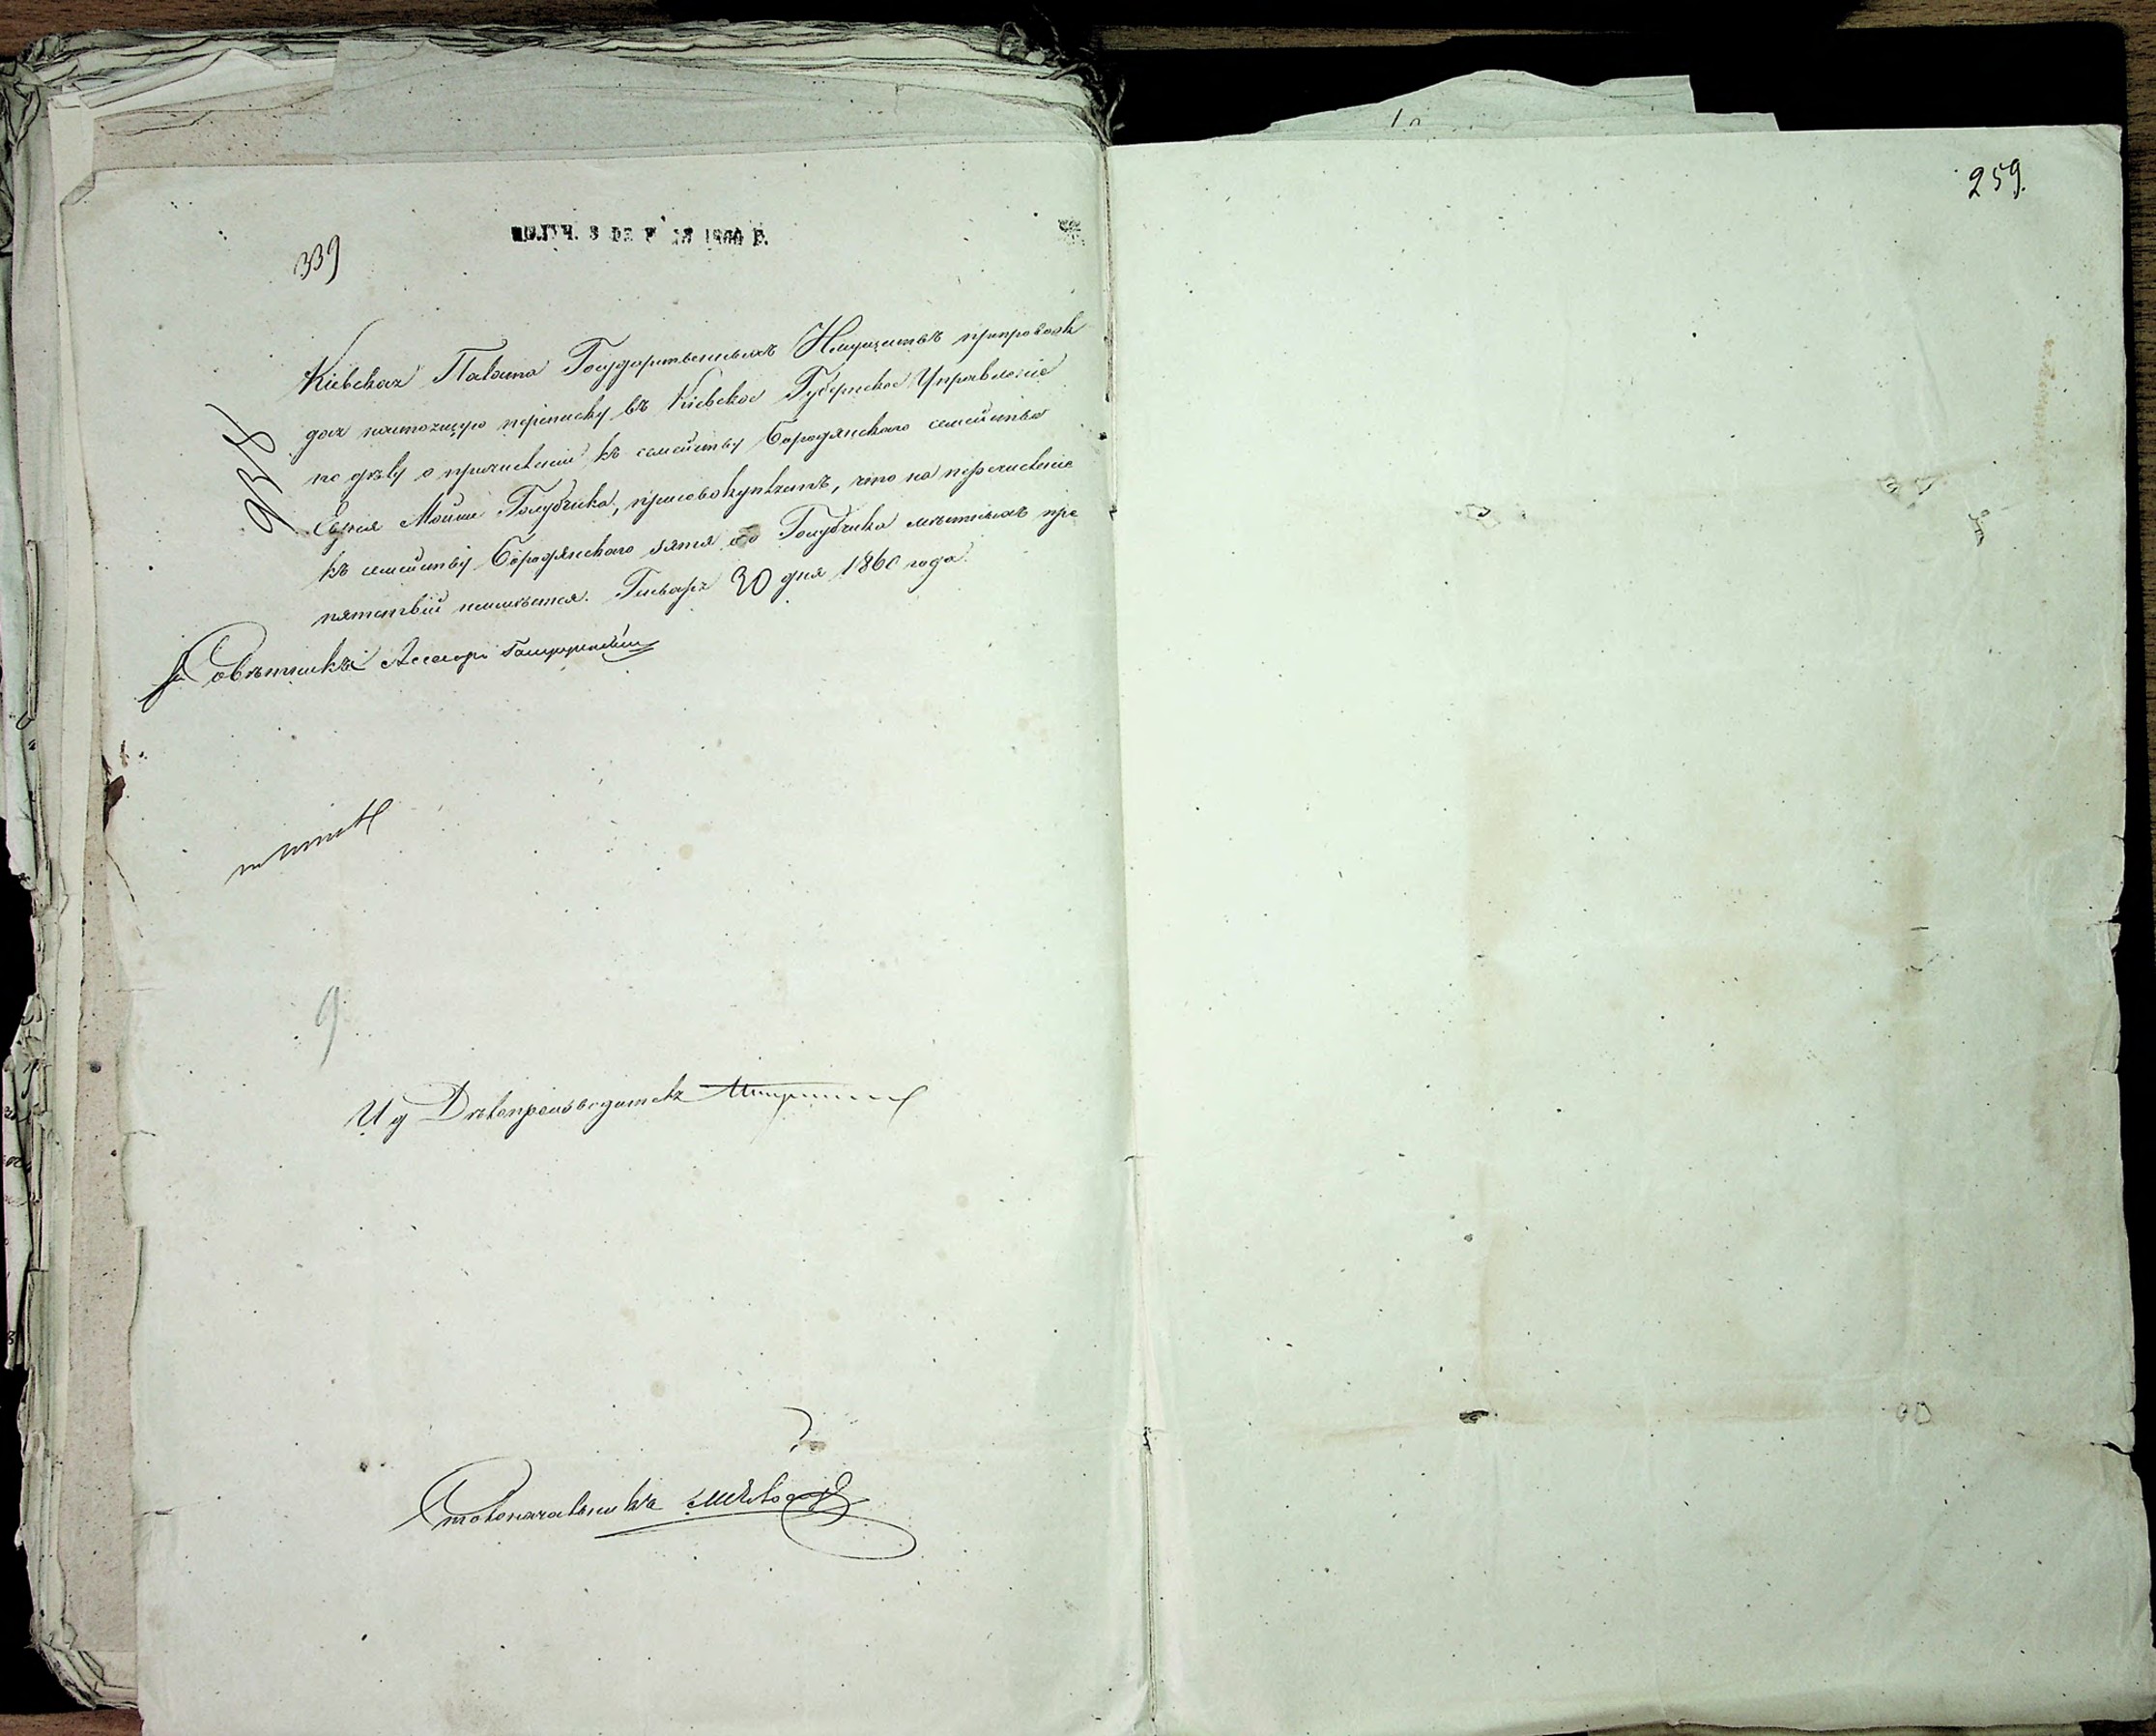 259.
339
ПОЛУЧ. 3 1860 Г.
Кіевская Палата Государственныхъ Имуществъ препровож
дая настоящую переписку въ Кіевское Губернское Управленіе
по дѣлу о причисленіи къ семейству Бородянскаго семейства
Еврея Мойши Голубчика, присовокупляетъ, что на перечисленіе
къ семейству Бородянскаго зятя его Голубчика мѣстныхъ пре
пятствій неимѣется. Генваря 30 дня 1860 года.
Совѣтникъ Ассесоръ
9
И д Дѣлопроизводителя
Столоначальникъ